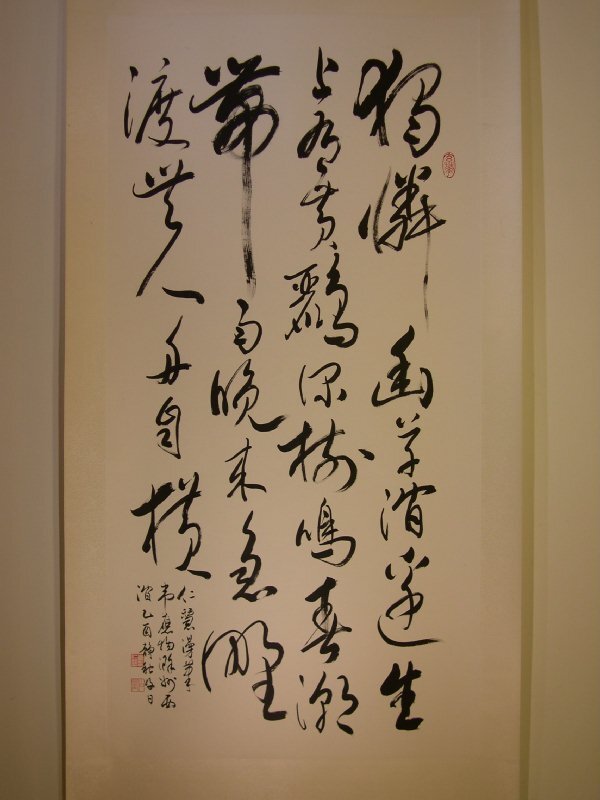 獨憐幽草澗邊生
上有黃鸝深樹鳴春潮
帶雨晚來急野
渡無人舟自橫
韋應物滁州西
澗乙酉